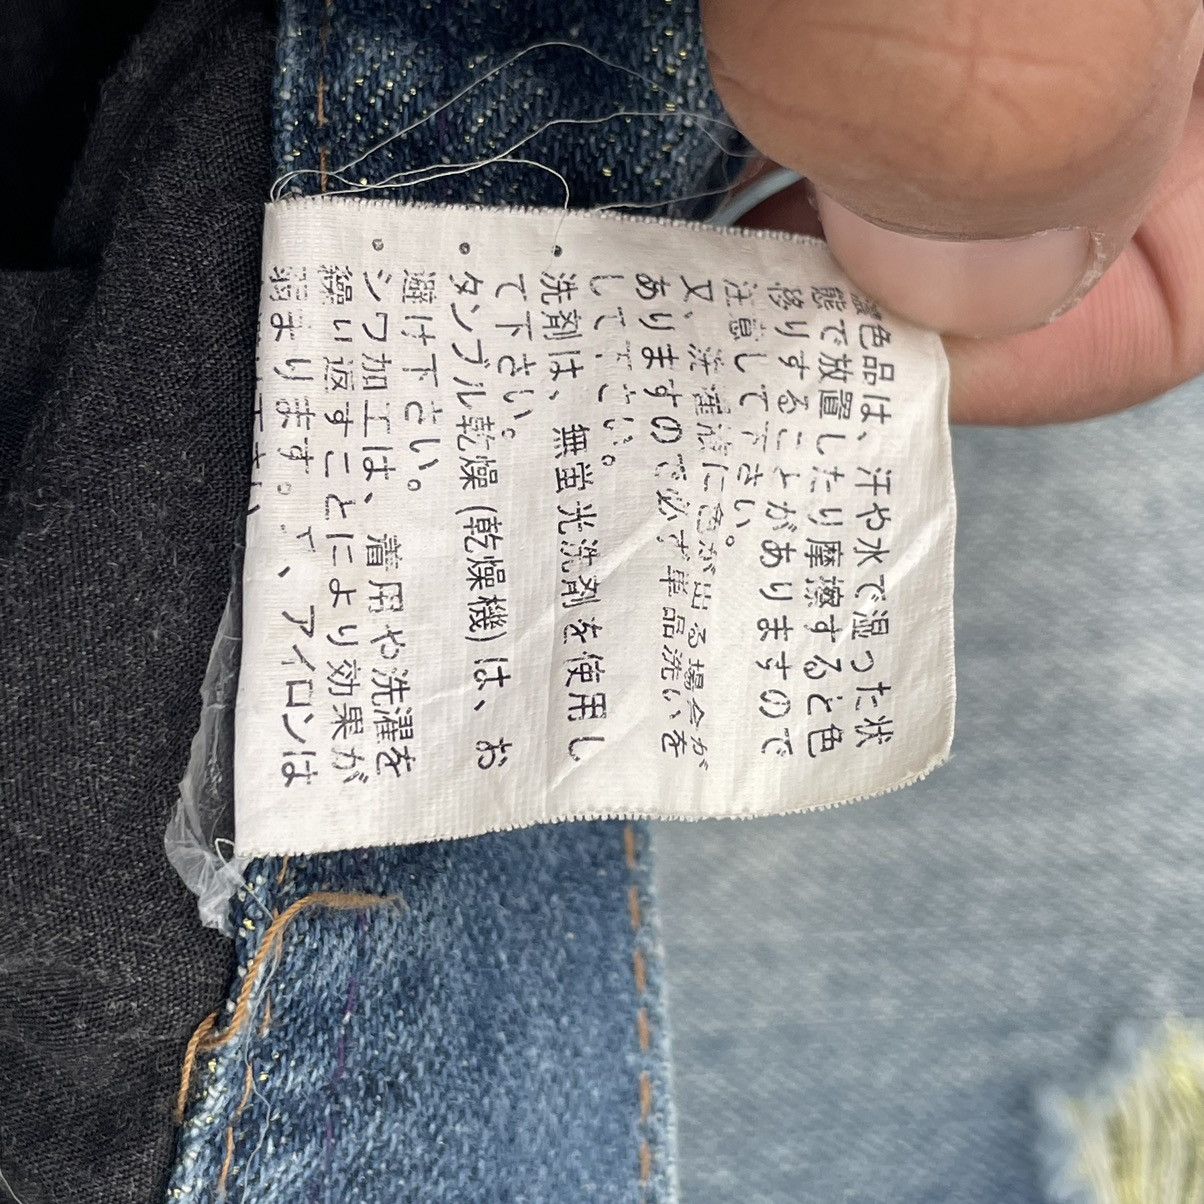 濃色品は、汗や水で湿った状
態で放置したり摩擦すると色
移りすることがありますので
注意して下さい。
又、洗濯液に色が出る場合が
ありますので必ず単品洗いを
して下さい。
・洗剤は、無蛍光洗剤を使用し
て下さい。
・タンブル乾燥(乾燥機)は、お
避け下さい。
・シワ加工は、着用や洗濯を
繰り返すことにより効果が
弱まります。 、アイロンは